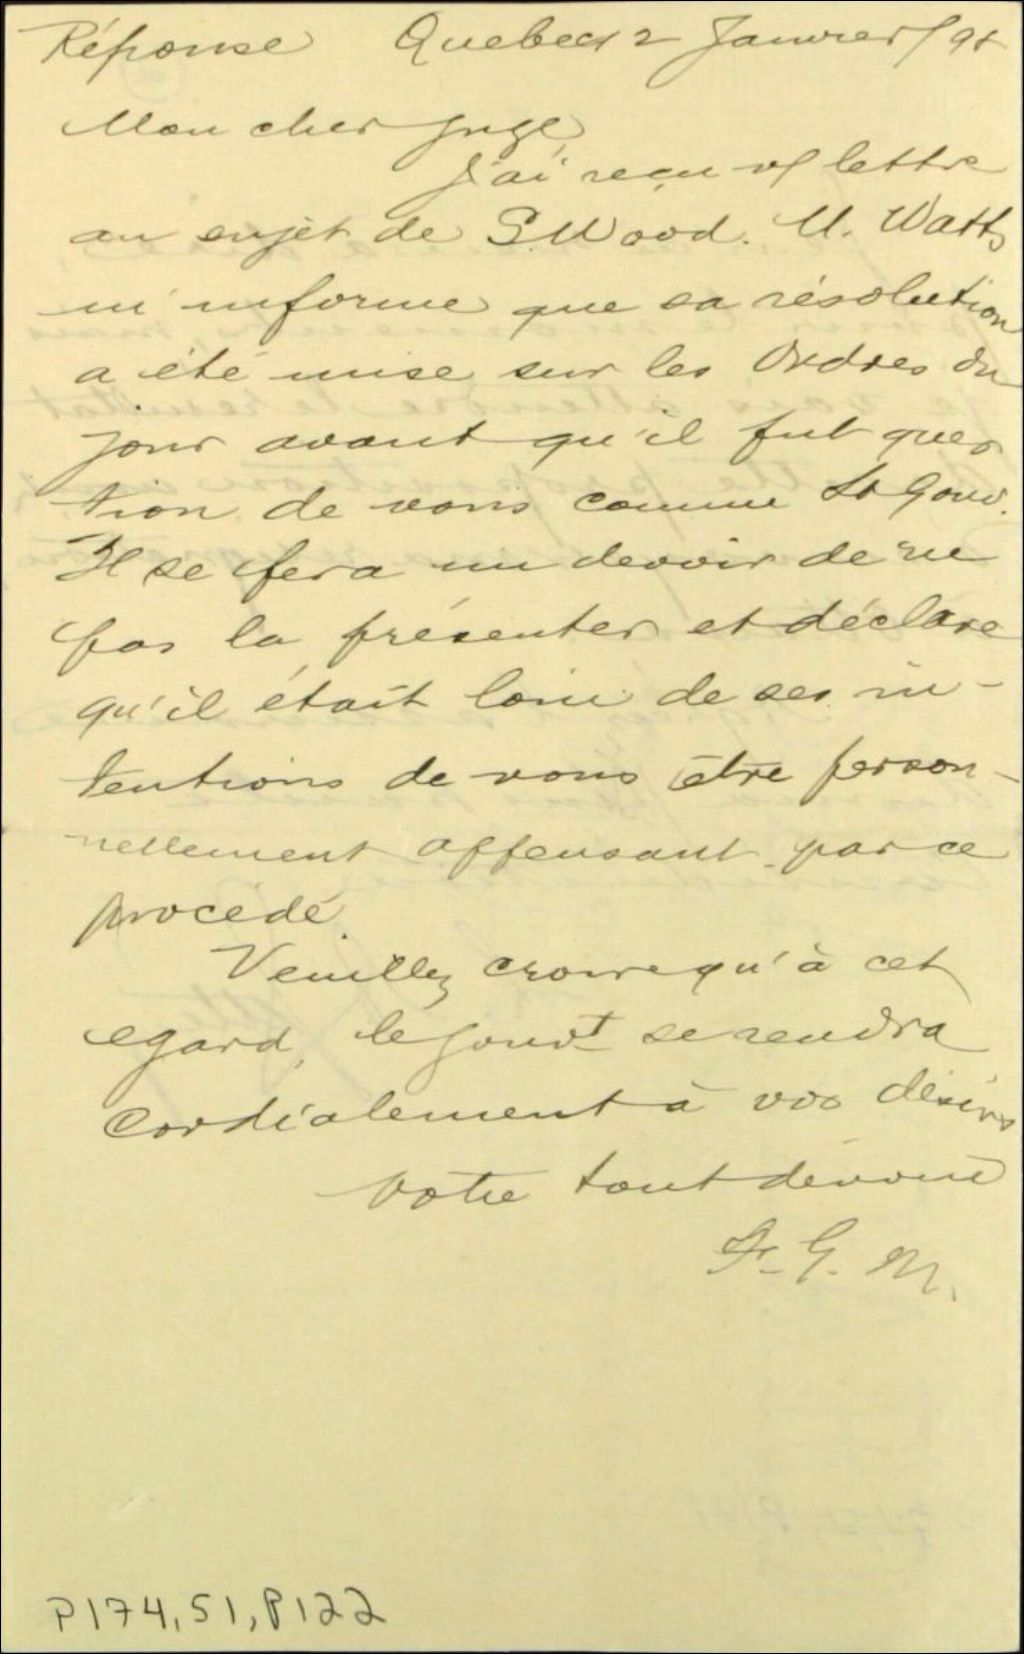 Réponse Quebec 12 Janvier/98
Mon cher Juge,
J'ai reçu vf lettre
au sujet de S. Wood. M. Watts
m'informe que sa résolution
a été mise sur les Ordres du
jour avant qu'il fut ques
tion de vous comme Lt Gouv.
Il se fera un devoir de ne
pas la présenter et déclare
qu'il était loin de ses in-
tentions de vous être person-
nellement offensant par ce
procédé.
Veuillez croire qu'à cet
egard, le gouvt se rendra
cordialement à vos désirs
Votre tout dévoué
F. G. M.
P174,S1,P122